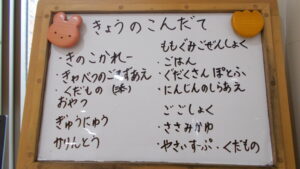 きょうのこんだて
・きのこかれー
・きゃべつのごまずあえ
・くだもの
おやつ
ぎゅうにゅう
かりんとう
ももぐみごぜんしょく
・ごはん
・ぐだくさんぽとふ
・にんじんのしらあえ
ごごしょく
・ささみかゆ
・やさいすーぷ・くだもの